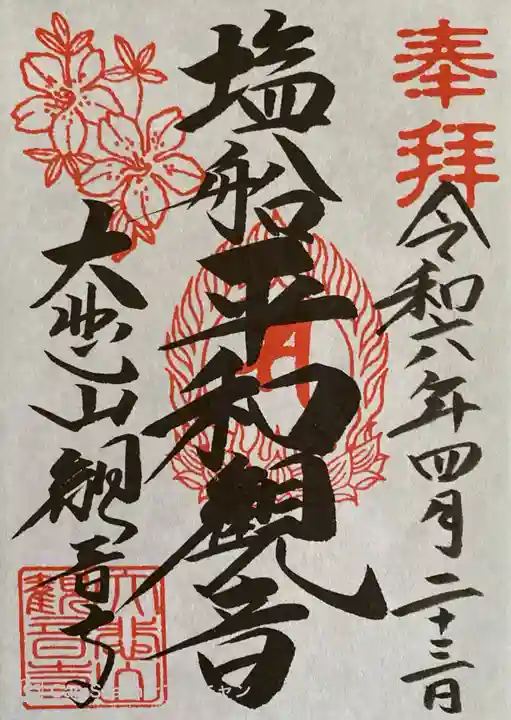 奉拝
令和六年四月二十三日
塩船平和観音
大悲山観音寺